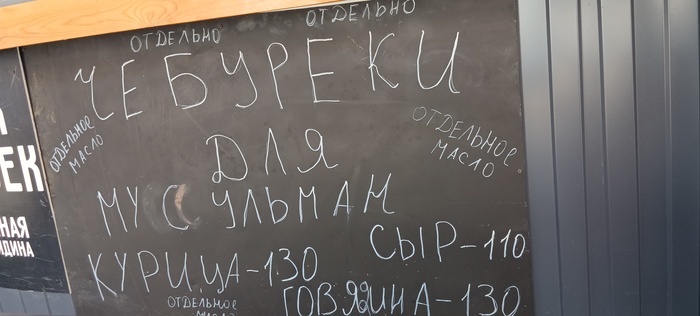 ОТДЕЛЬНО
ОТДЕЛЬНО
ЧЕБУРЕКИ
ОТДЕЛЬНОЕ
МАСЛО
ОТДЕЛЬНОЕ
МАСЛО
ДЛЯ
МУСУЛЬМАН
СЫР-110
КУРИЦА-130
ГОВЯДИНА-130
ОТДЕЛЬНОЕ
МАСЛО
ЕК
НАЯ
ЯДИНА